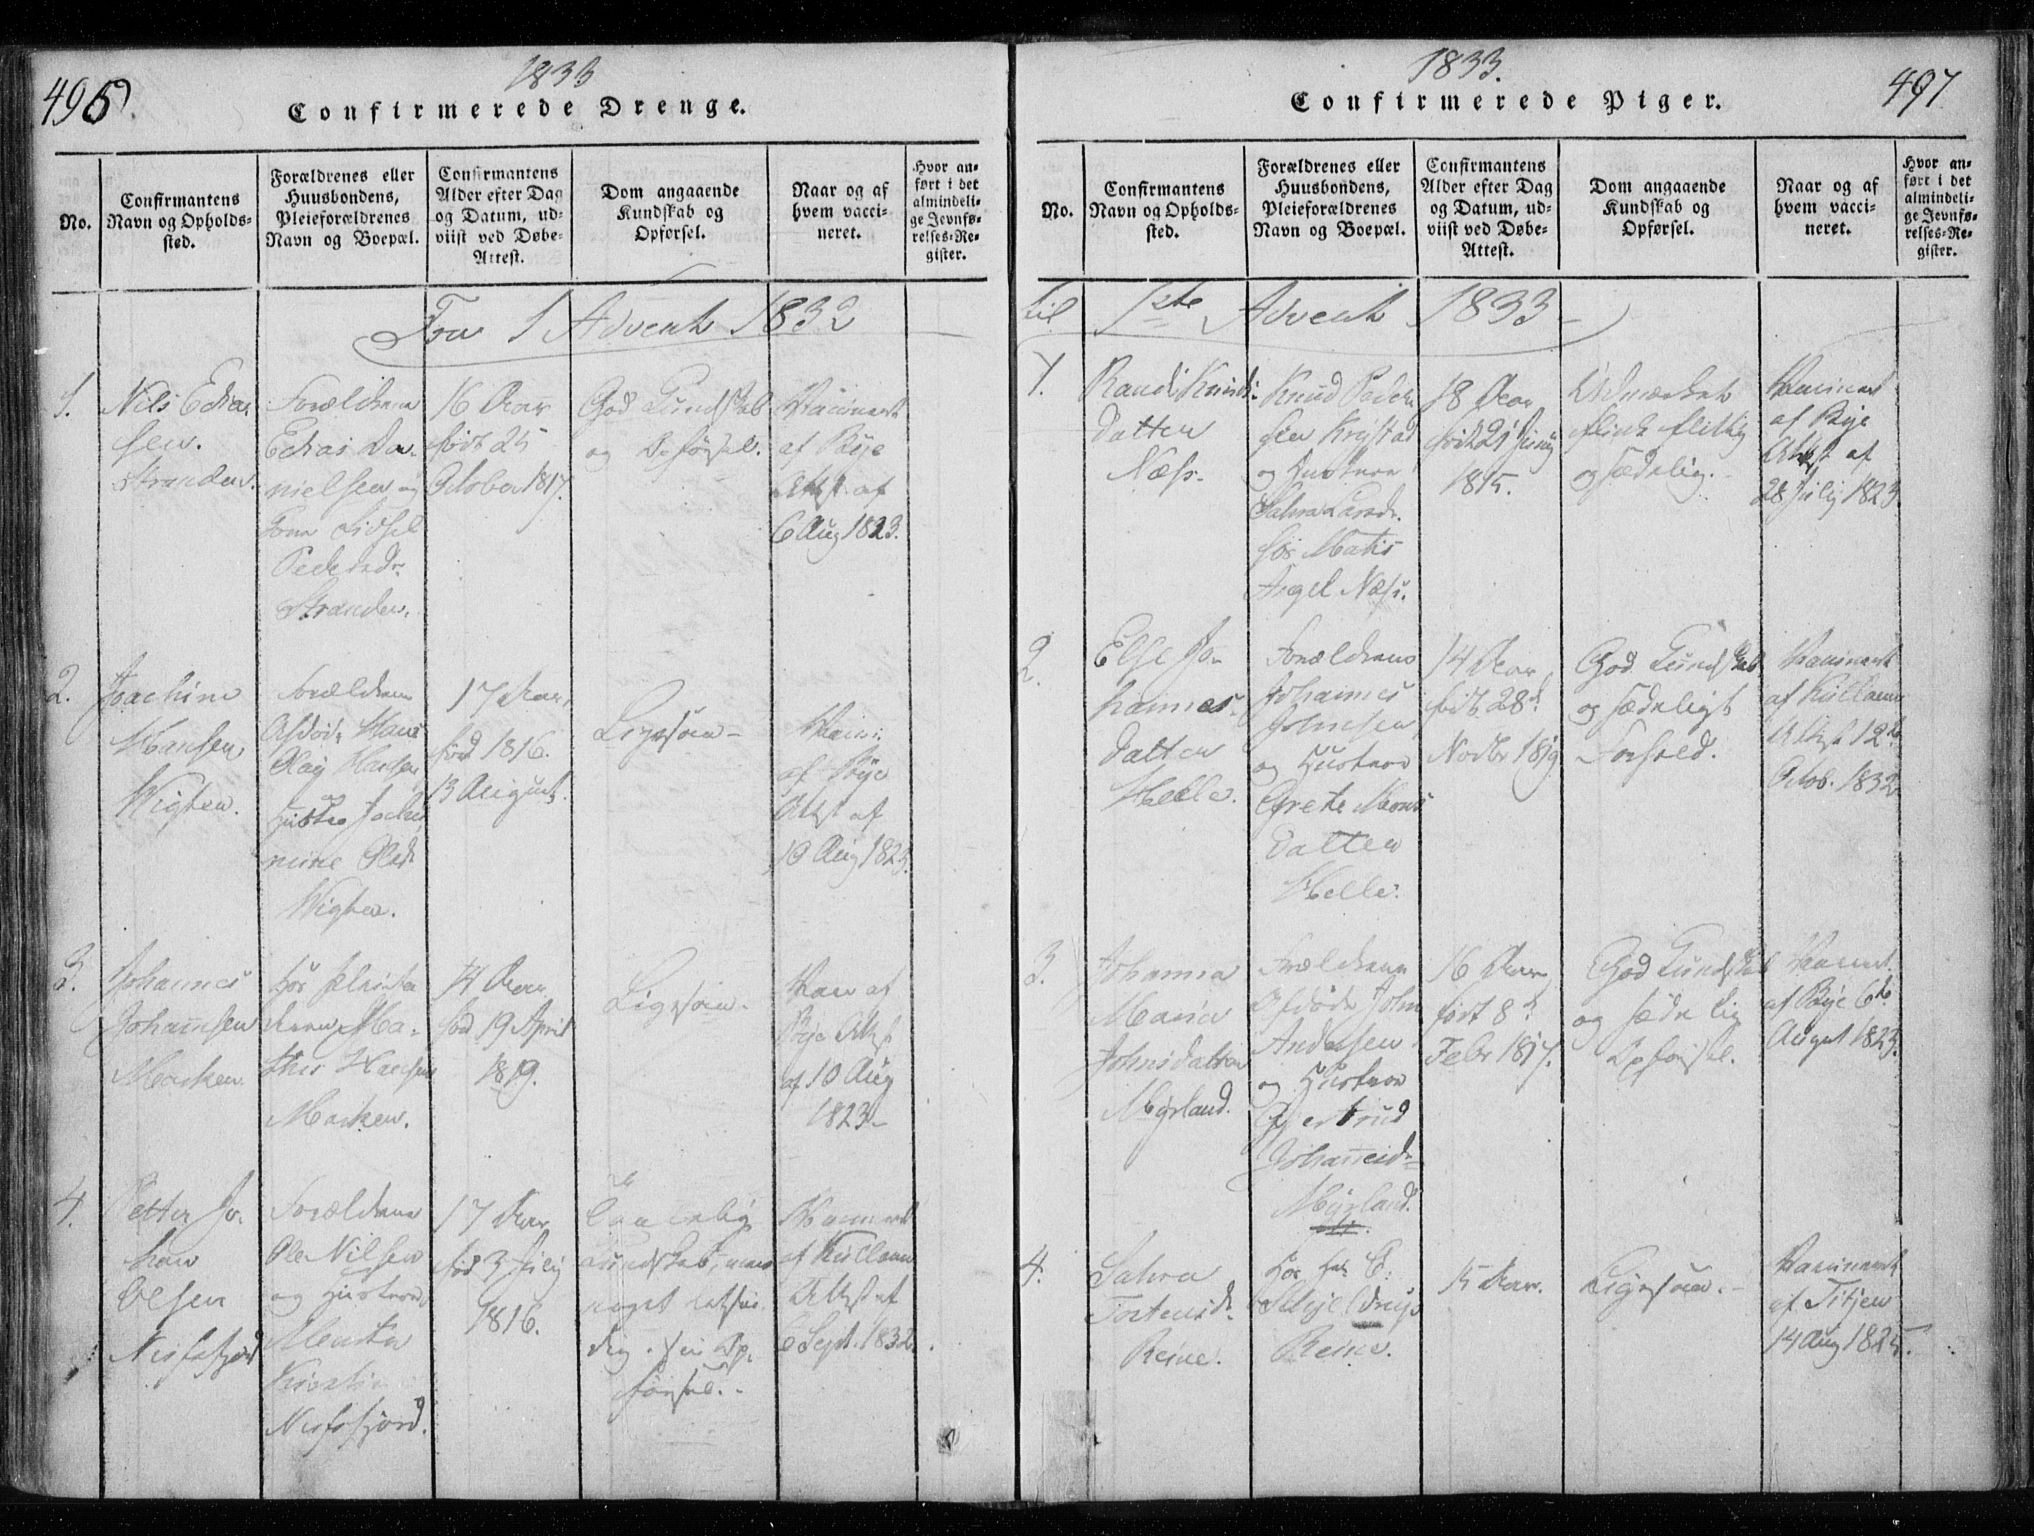 496.
1833
Confirmerede Drenge.
No.
Confirmantens
Navn og Opholds-
sted.
Forældrenes eller
Huusbondens,
Pleieforældrenes
Navn og Boepæl.
Confirmantens
Alder efter Dag
og Datum, ud-
viist ved Døbe-
Attest.
Dom angaaende
Kundskab og
Opførsel.
Naar og af
hvem vacci-
neret.
Hvor an-
ført i det
almindeli-
ge Jevnfø-
relses-Re-
gister.
Fra 1 Advent 1832
1.
Nils
sen.
Stranden.
Forældrene
Da-
nielsen og
Kone Sidsel
Pedersd.
Stranden.
16 Aar
født 25
October 1817.
God Kundskab
og Opførsel.
Vaccineret
af Bye
Attest af
6 Aug 1823.
2.
Joachim
Hansen
Vigten.
Forældrene
Afdøde Hans
Olai Hansen
og
Hustro Joche
mine Olsd.
Vigten.
17 Aar
fød 1816.
13 August.
Ligesom
Vaccin:
af Bye
Attest af
10 Aug 1823.
3.
Johannes
Johannsen
Marken
Hos
Ma-
this Hansens
Marken.
14 Aar
fød 19 April
1819.
Ligesom
Vacc af
Bye Attst
af 10 Aug
1823
4.
Petter Jo-
han
Olsen
Nesfsfjord
Forældrene
Ole Nilsen
og Hustroe
Kirstin
Nusfsfjord.
17 Aar
fød 3 July
1816.
Taalelig
Kundskab,
noget
dig i sin Op-
førsel.
Vaccineret
af Kullmann
Attest af
6 Sept. 1832.
1833.
497
Confirmerede Piger.
No.
Confirmantens
Navn og Opholds-
sted.
Forældrenes eller
Huusbondens,
Pleieforældrenes
Navn og Boepæl.
Confirmantens
Alder efter Dag
og Datum, ud-
viist ved Døbe-
Attest.
Dom angaaende
Kundskab og
Opførsel.
Naar og af
hvem vacci-
neret.
Hvor an-
ført i det
almindeli-
ge Jevnfø-
relses-Re-
gister.
til 1ste Advent 1833
1.
Randi Knuds-
datter
Næss.
Knud Peder-
sen Krystad
og Hustroe
Larsd.
hos Mathis
Angel Næss.
18 Aar
født 21 Juny
1815.
Udmærket
flink flittig
og sædelig.
Vaccineret
af Bye
Attst af
28 July 1823
2.
Else Jo-
hannes-
datter
Helle.
Forældrene
Johannes
Johnsen
og Hustroe
Grete Mons
datter
Helle.
14 Aar
født 28d
Novbr 1819.
God Kundskab
og sædeligt
Forhold.
Vaccineret
af Kullmann
Attest 12te
Octob. 1832
3.
Johanna
Maria
Johnsdatter
Myrland.
Forældrene
Afdøde John
Andersen
og Hustroe
Gjertrud
Johannesd.
Myrland.
16 Aar
født 8d
Febr 1817.
God Kundskab
og sædelig
Opførsel.
Vaccineret
af Bye 6te
August 1823.
4.
Torstensd.
Reine.
Hos
Schjeldrup
Reine.
15 Aar.
Ligesom.
Vaccineret
af
14 Aug 1825.